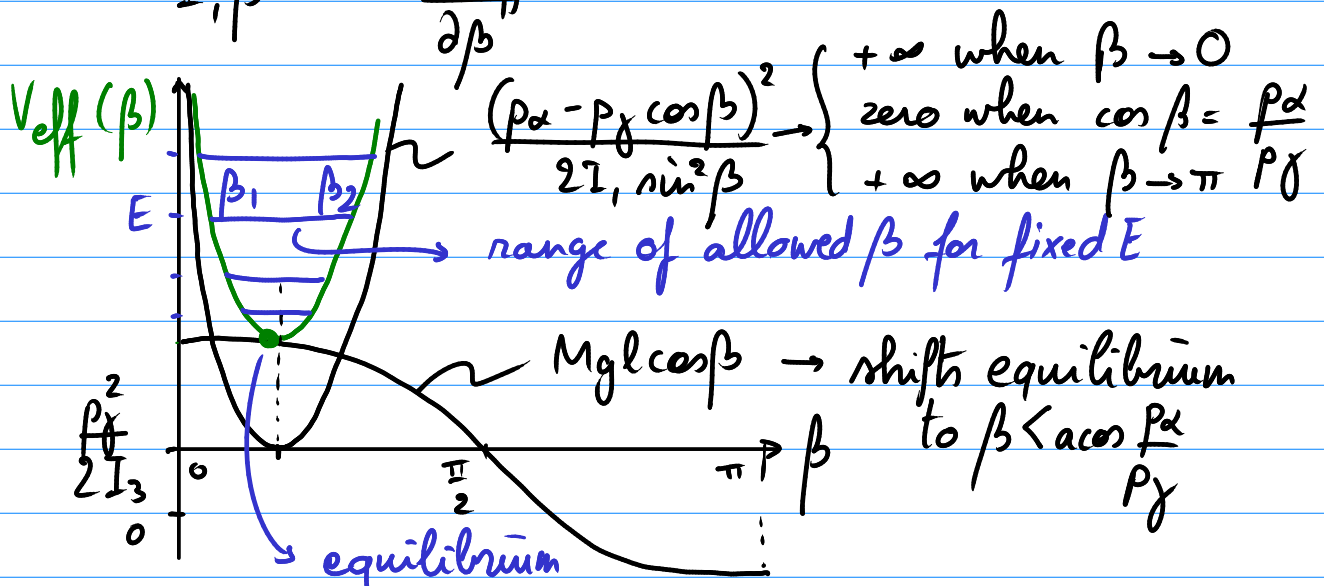 ∂β
V_eff(β)
(p_α - p_γ cos β)² / 2I₁ sin²β → { + ∞ when β → 0
zero when cos β = p_α / p_γ
+ ∞ when β → π
β₁ β₂
E
range of allowed β for fixed E
Mgl cos β → shifts equilibrium
to β < acos p_α / p_γ
p_γ² / 2I₃
0 π/2 π β
0
equilibrium